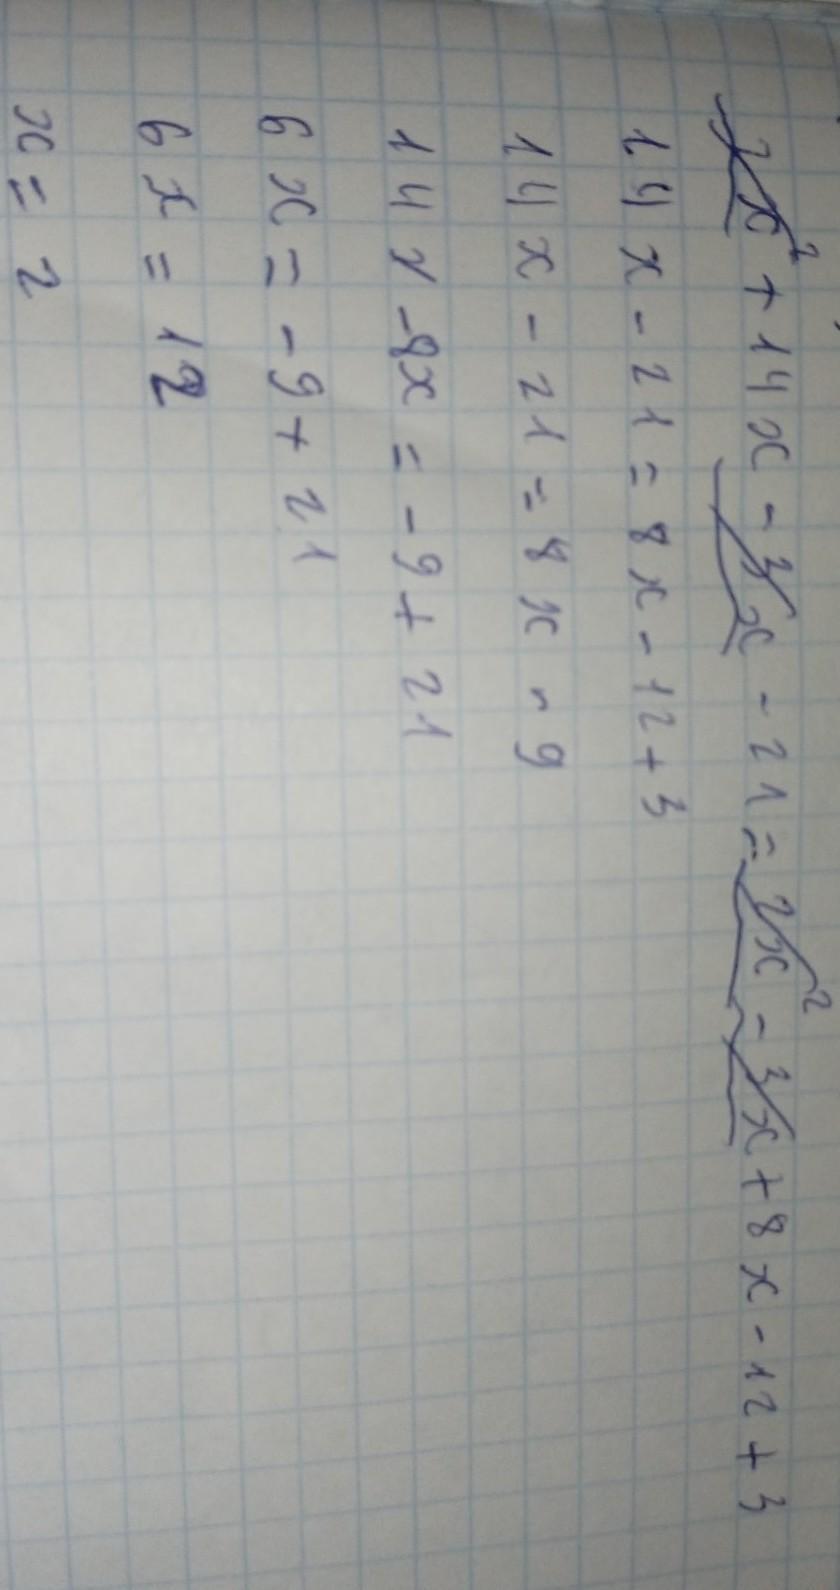 2x² + 14x - 3x - 21 = 2x² - 3x + 8x - 12 + 3
14x - 21 = 8x - 12 + 3
14x - 21 = 8x - 9
14x - 8x = -9 + 21
6x = -9 + 21
6x = 12
x = 2